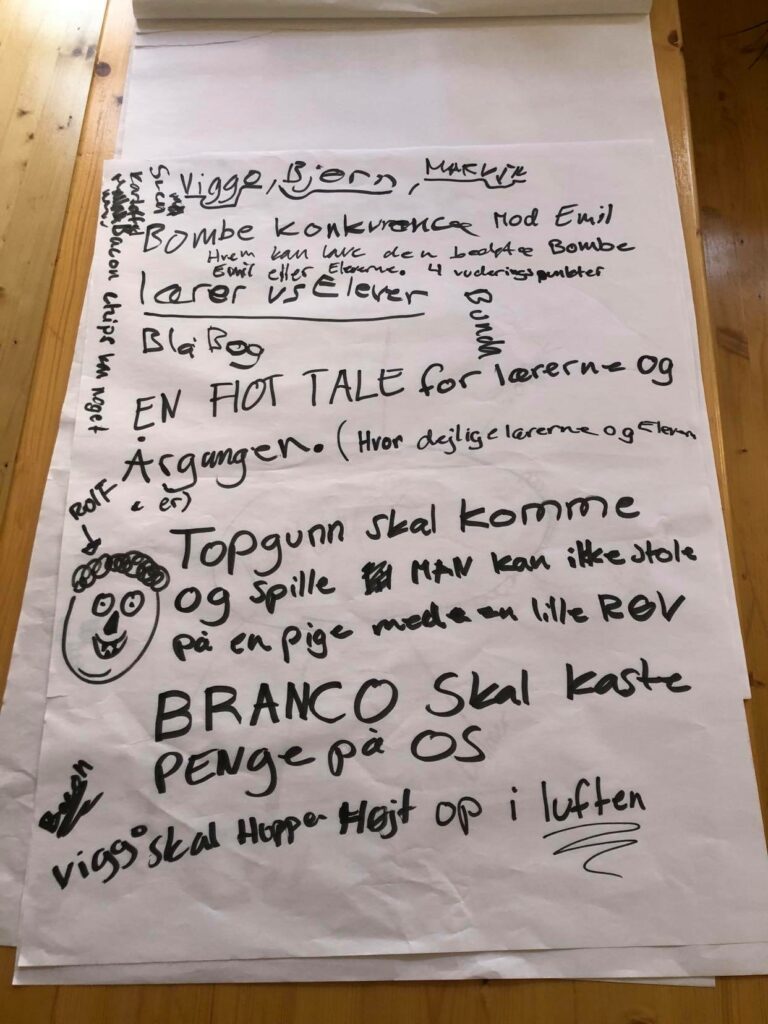 Viggo, Bjørn, MARVIN
Bombe konkurence Mod Emil
Hvem kan lave den bedste Bombe
Emil eller Eleverne. 4 vuderingspunkter
lærer vs Elever
Blå Bog
EN FLOT TALE for lærerne og
Årgangen. (Hvor dejlige lærerne og Eleverne
er)
ROLF
Topgunn skal komme
og spille MAN kan ikke stole
på en pige med en lille RØV
BRANCO Skal kaste
PENge på OS
viggo skal Hoppe Højt op i luften
Bacon chips kan noget